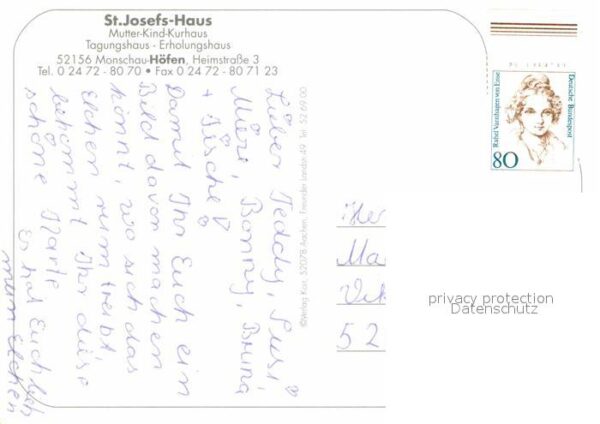 St.Josefs-Haus
Mutter-Kind-Kurhaus
Tagungshaus - Erholungshaus
52156 Monschau-Höfen, Heimstraße 3
Tel. 0 24 72 - 80 70 • Fax 0 24 72 - 80 71 23
Lieber Teddy, Susi,
Müzi, Bonny, Bruna
+ Fische!
Damit Ihr Euch ein
Bild davon machen
könnt, wo sich das
Elchen rumtreibt,
bekommt Ihr diese
schöne Karte
Es hat Euch lieb
Elchen
©Verlag Kort, 52078 Aachen, Freunder Landstr. 49 Tel 52 69 00
Deutsche Bundespost
Rahel Varnhagen von Ense
80
Ma
52
privacy protection
Datenschutz